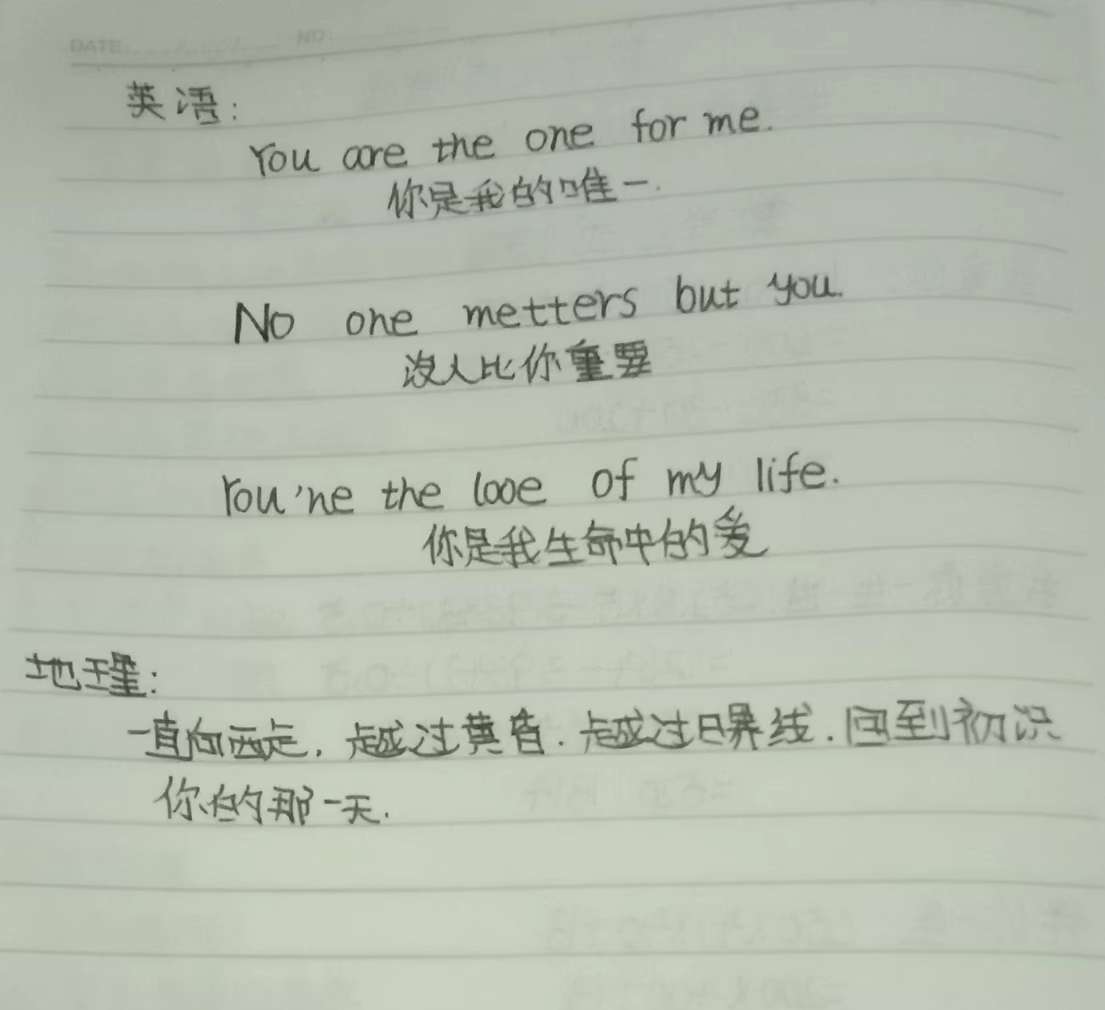 DATE: NO:
英语:
You are the one for me.
你是我的唯一.
No one metters but you.
没人比你重要
You'ne the looe of my life.
你是我生命中的爱
地理:
一直向西走, 越过黄昏. 越过日界线. 回到初识
你的那一天.